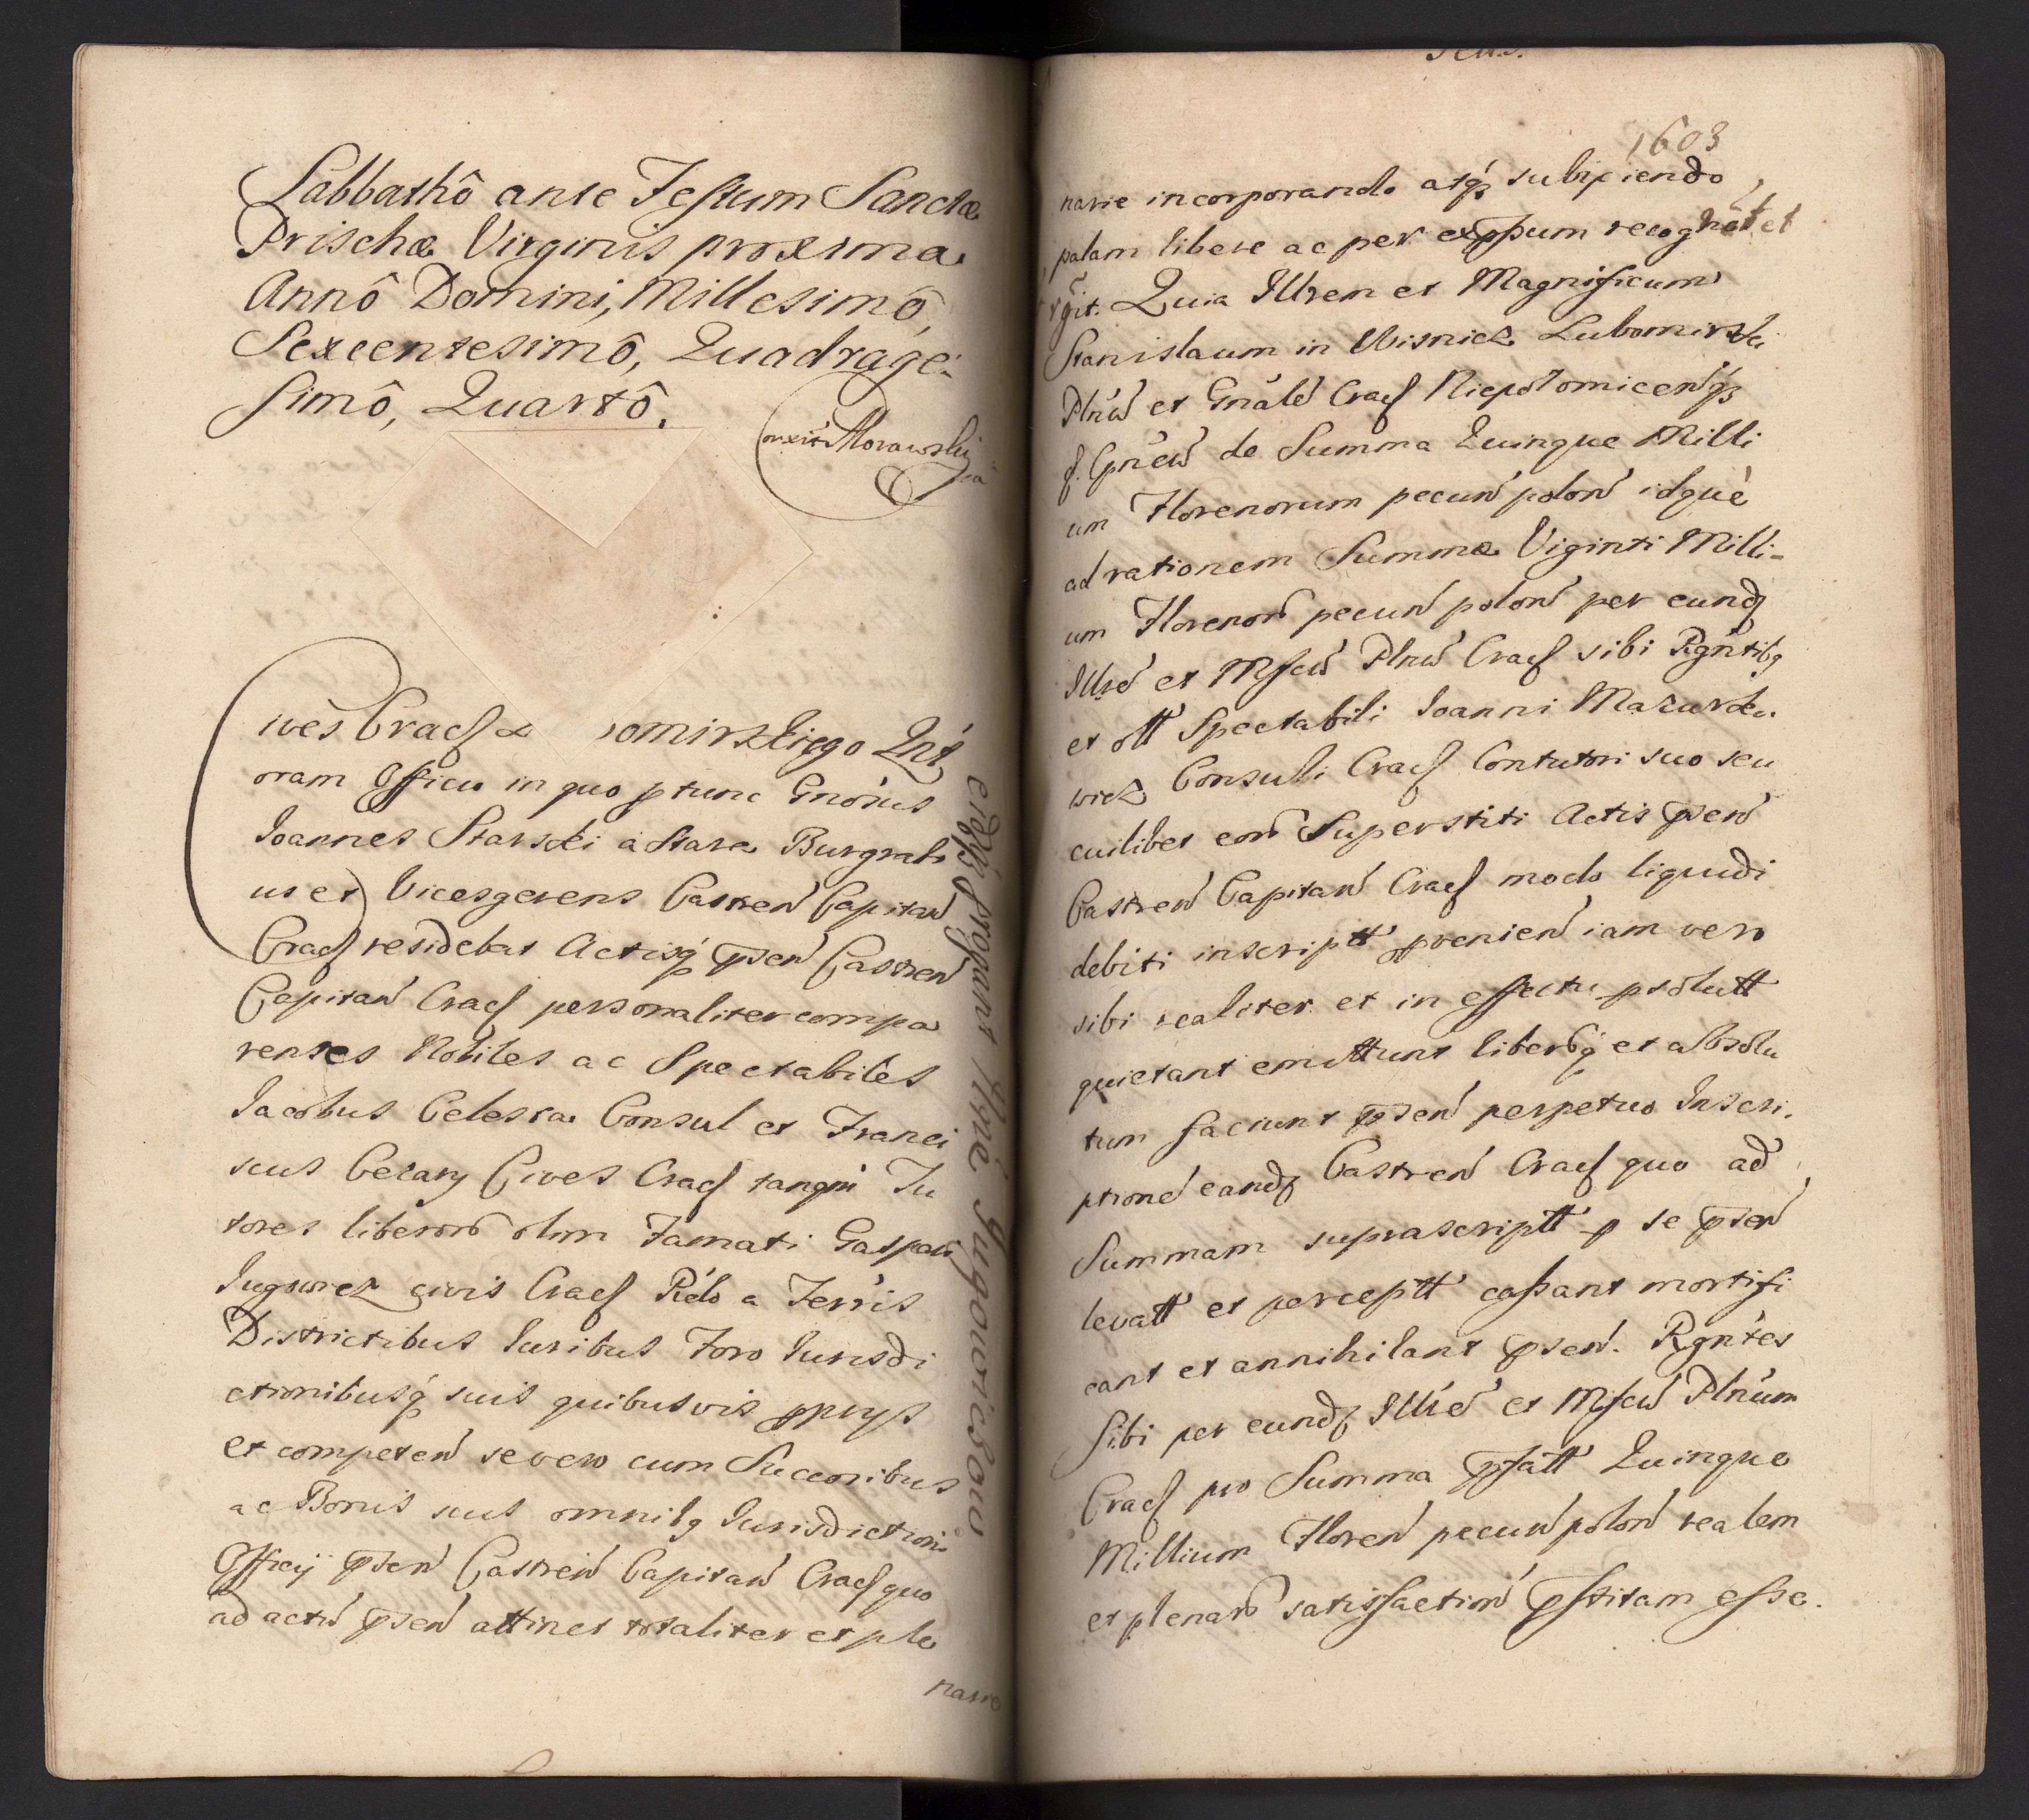 Sabbathô ante Festum Sanctæ
Prischæ Virginis proxima
Annô Domini, Millesimô,
Sexcentesimô, Quadrage-
simô, Quartô.
Morawski
ives Cracſ
omirskiego
oram Officio in quo ptunc Gnosus
Joannes Starski a Stara Burgrabi
us et Vicesgerens Castren Capitan
Cracſ residebat Actisq psen Castren
Capitan Cracſ personaliter compa
rentes Nobiles ac Spectabiles
Jacobus Celesta Consul et Franci
scus Cezary Cives Cracſ tanqm Tu
tores liberorũ olim Famati Gaspari
Jugowicz civis Cracſ Rcdo a Terris
Districtibus Juribus Foro Jurisdi
ctionibusq suis quibusvis pprijs
et competen se vero cum Succoribus
ac Bonis suis omnibq Jurisdictioni
Officij psen Castren Capitan Cracſ quo
ad actũ psen attinet totaliter et ple
narie
Jugowiczow
1603
narie incorporando atq subijciendo,
palam libere ac per exprßum recognot et
Quia Illrem et Magnificum
Stanislaum in Wisnicz Lubomirski
Plnũ et Gnalẽ Cracſ Niepolomicenq
de Summa Quinque Milli
um Florenorum pecuñ poloñ idque
ad rationem Summæ Viginti Milli-
um Florenorũ pecuñ poloñ per eundȝ
Illrẽ et Mfcũ Plnũ Cracſ sibi Rgntibq
et ott Spectabili Joanni Mazurko
wicz Consuli Cracſ Contutori suo seu
cuilibet eorũ Superstiti Actis psen
Castren Capitan Cracſ modo liquidi
debiti inscriptt provenien iam vero
sibi realiter et in effectu psolutt
quietant emittunt liberosq et absolu
tum faciunt psen perpetuo Inscri-
ptionẽ eandȝ Castren Cracſ quo ad
Summam suprascriptt p se psen
levatt et perceptt caßant mortifi
cant et annihilant psen. Rgntes
sibi per eundȝ Illrẽ et Mfcũ Plnum
Cracſ pro Summa pfatt Quinque
Millium Floren pecuñ poloñ realem
et plenarũ satisfactionẽ pstitam eße.